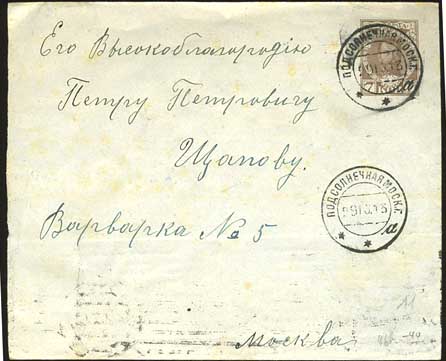 Его Высокоблагородію
Петру Петровичу
Щапову.
Варварка № 5
Москва
ПОДСОЛНЕЧНАЯ МОСК.Г.
а
7 КОП
ПОДСОЛНЕЧНАЯ МОСК.Г.
а